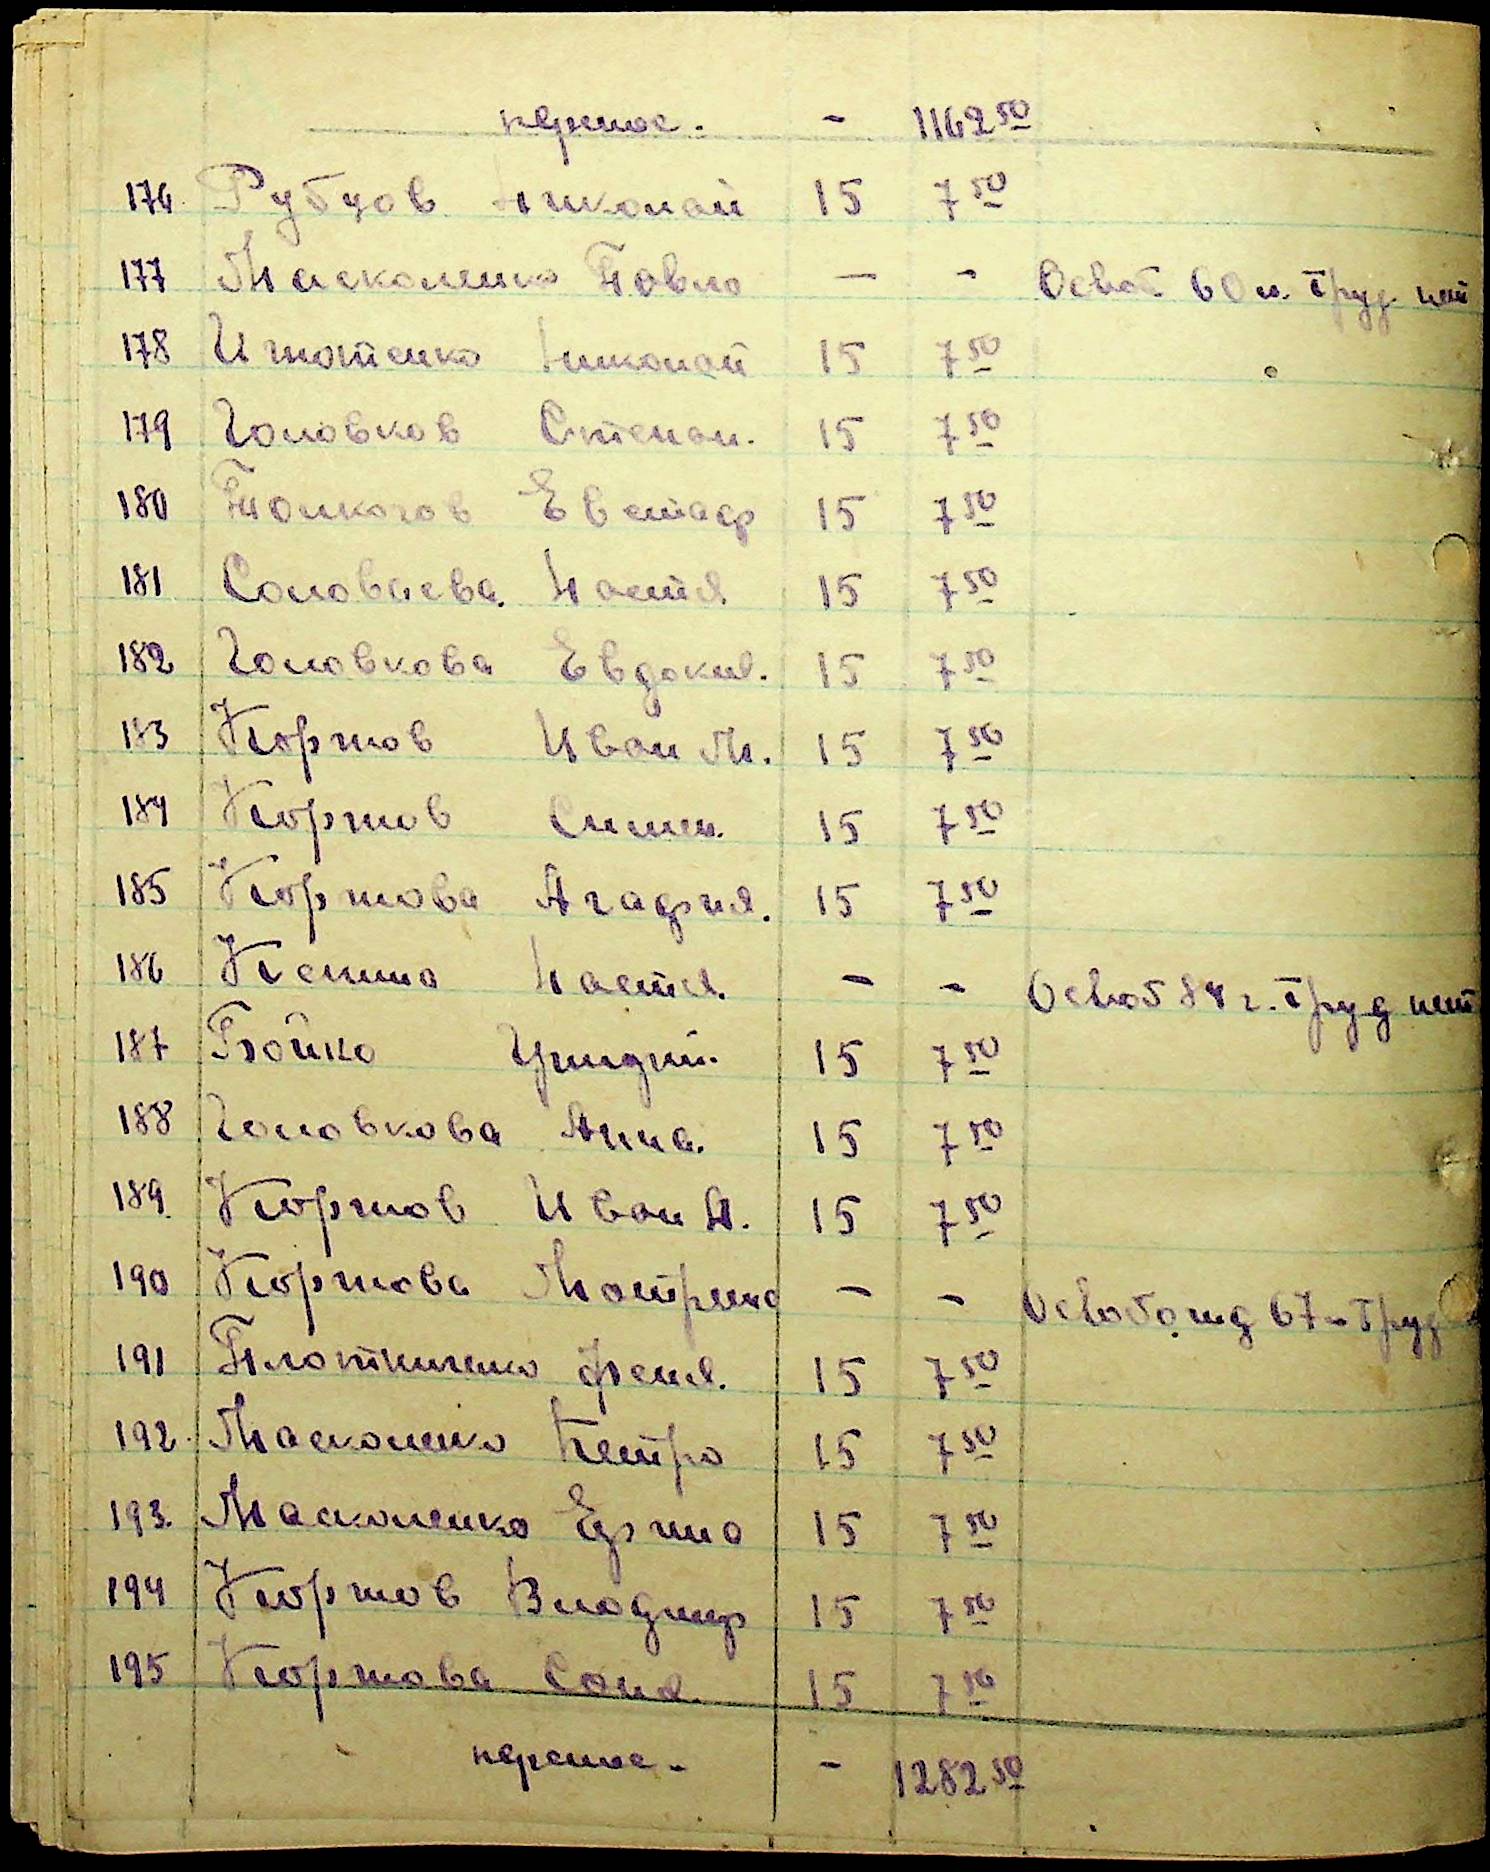 перенос. - 1162 50
176. Рубцов Николай 15 7 50
177 Масколенко Павло — - Освоб. 60 л. Труд. нет
178 Игнатенко Николай 15 7 50
179 Головков Степан. 15 7 50
180 Толкачов Евстаф 15 7 50
181 Соловьева Настя 15 7 50
182 Головкова Евдоким. 15 7 50
183 Коржов Иван М. 15 7 50
184 Коржов Симен. 15 7 50
185 Коржова Агафия. 15 7 50
186 Кекина Настя. - - Освоб 84 г. Труд нет
187 Бойко 15 7 50
188 Головкова Анна. 15 7 50
189. Коржов Иван А. 15 7 50
190 Коржова Мотрина - - Освобожд 67 л Труд
191 Плотниченко Феня. 15 7 50
192. Масколенко Петро 15 7 50
193. Масколенко 15 7 50
194 Коржов Владимир 15 7 50
195 Коржова Соня. 15 7 50
перенос. - 1282 50